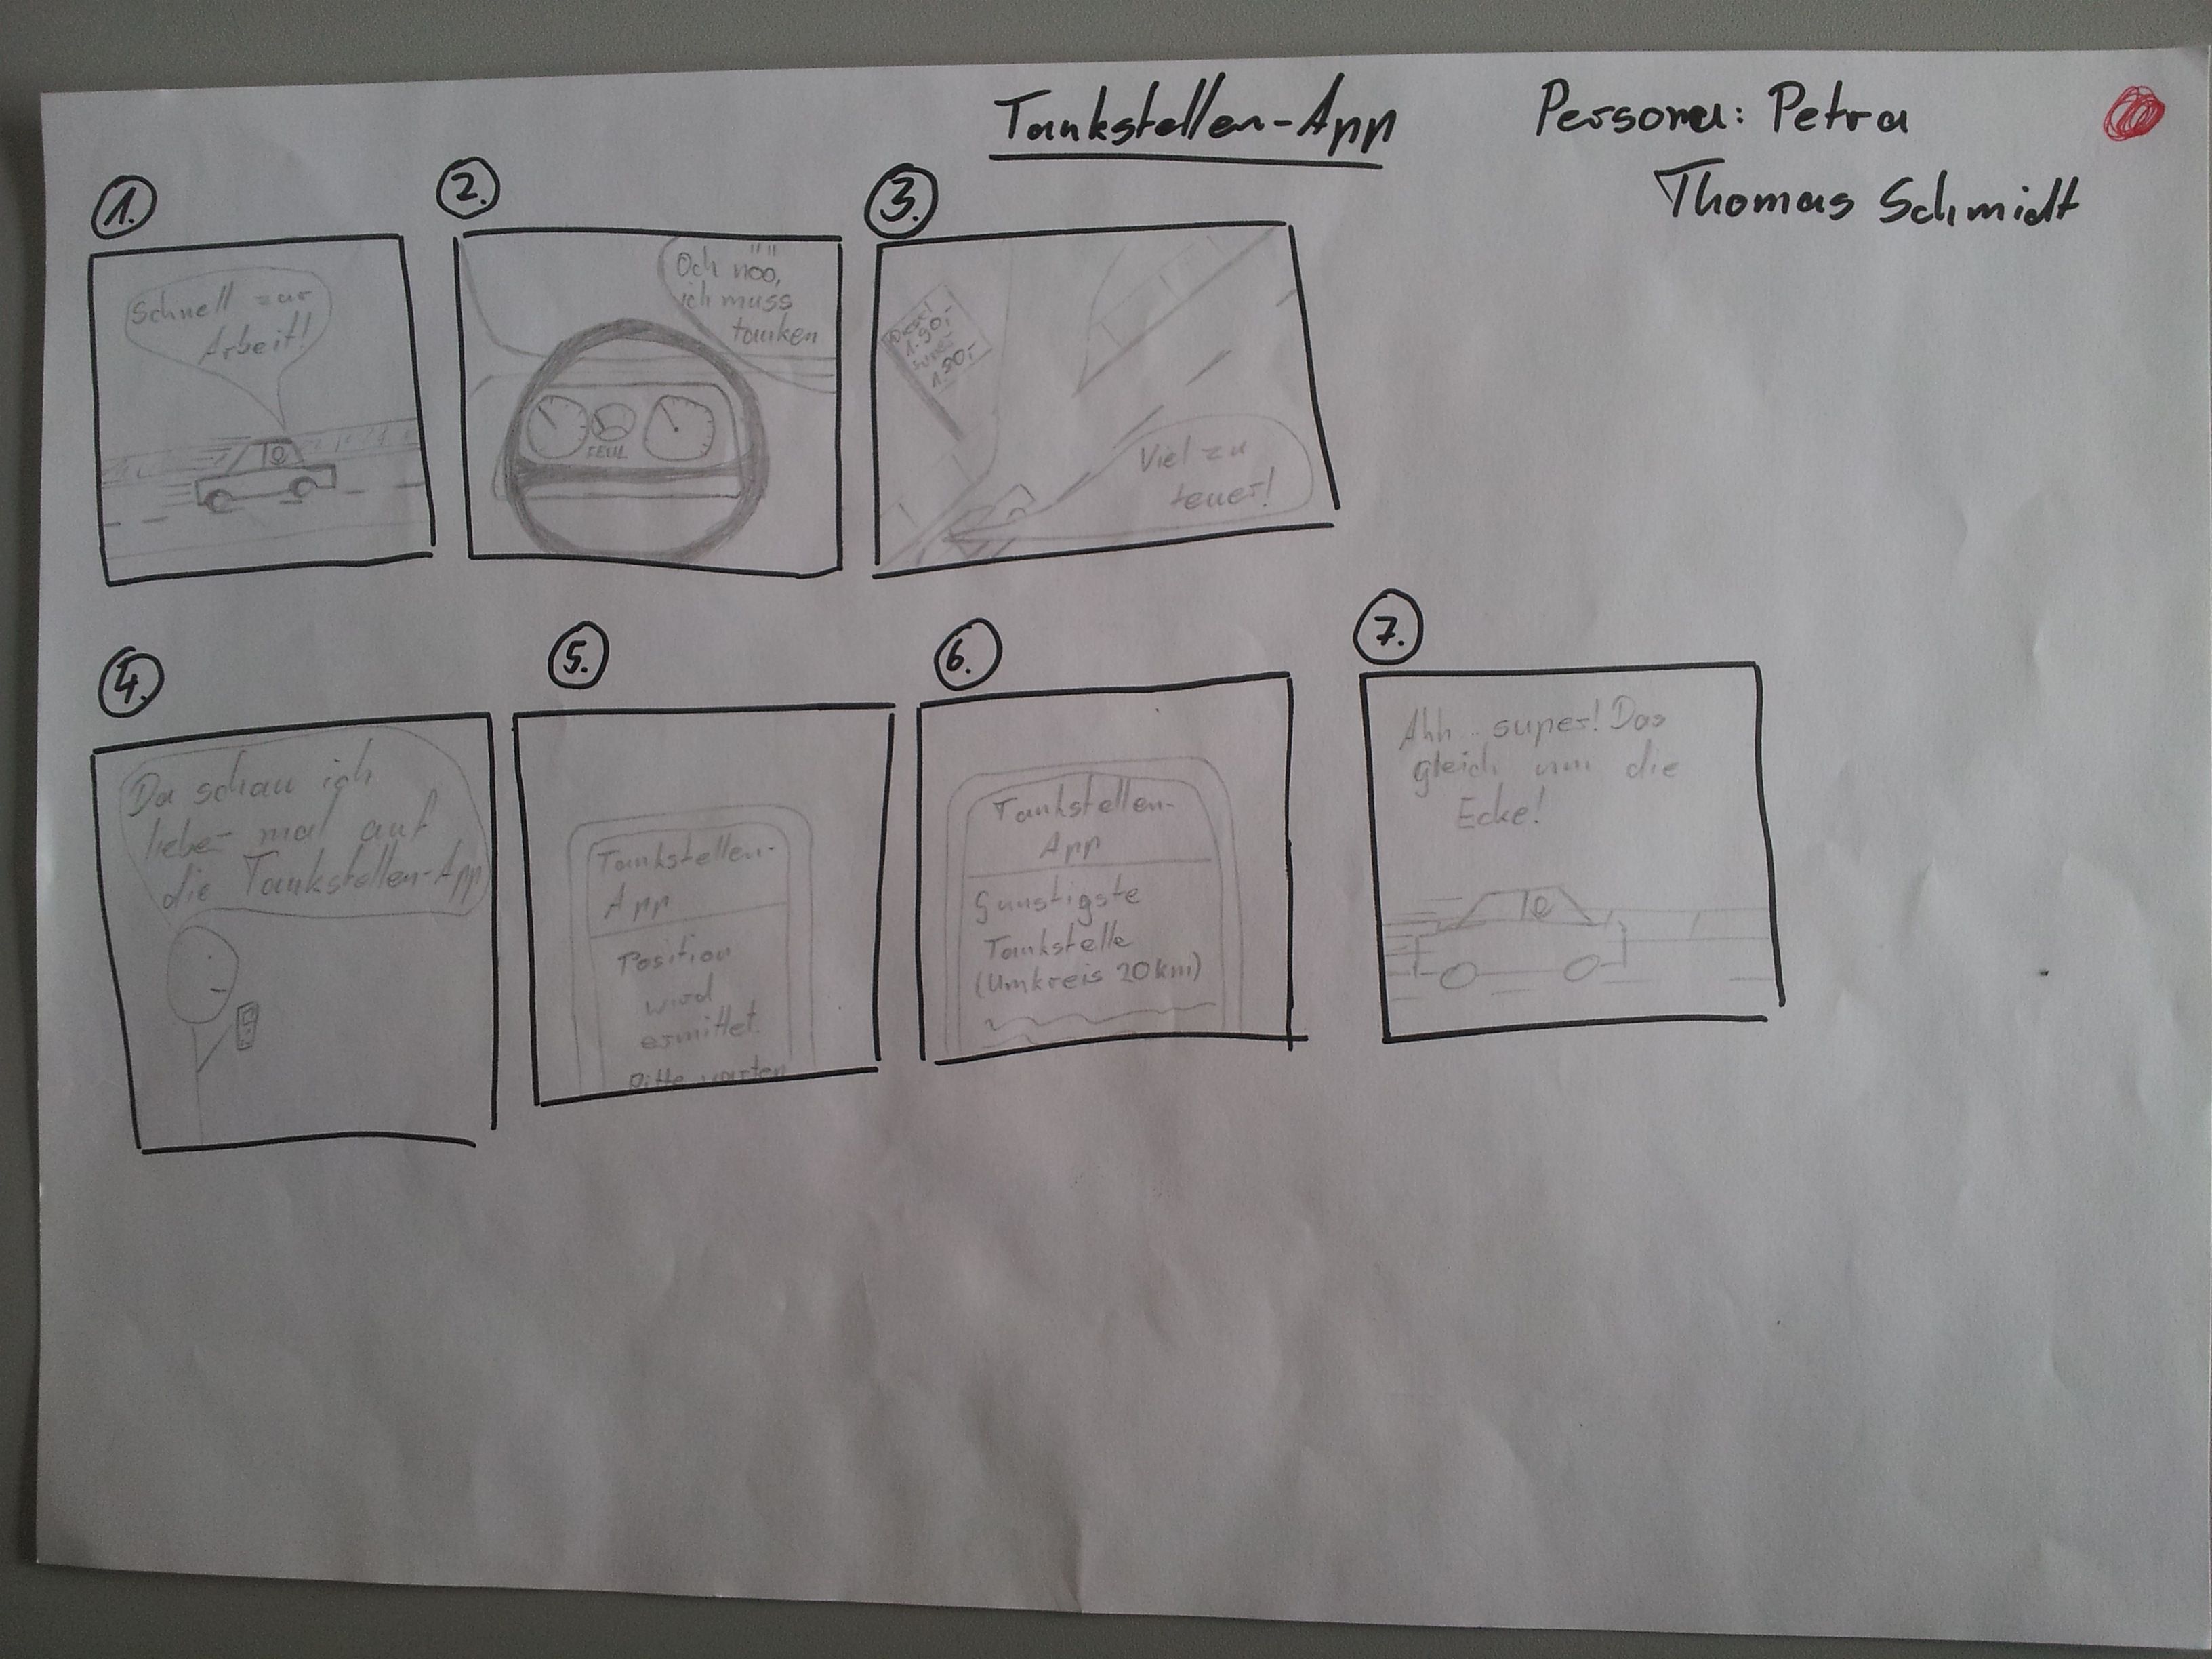 Tankstellen-App
Persona: Petra
Thomas Schmidt
1.
Schnell zur
Arbeit!
2.
Och nöö,
ich muss
tanken
FEUL
3.
Diesel
1.90,-
Super
1.90,-
Viel zu
teuer!
4.
Da schau ich
lieber mal auf
die Tankstellen-App
5.
Tankstellen-
App
Position
wird
ermittet.
Bitte warten
6.
Tankstellen-
App
Günstigste
Tankstelle
(Umkreis 20km)
7.
Ahh.. super! Das
gleich um die
Ecke!